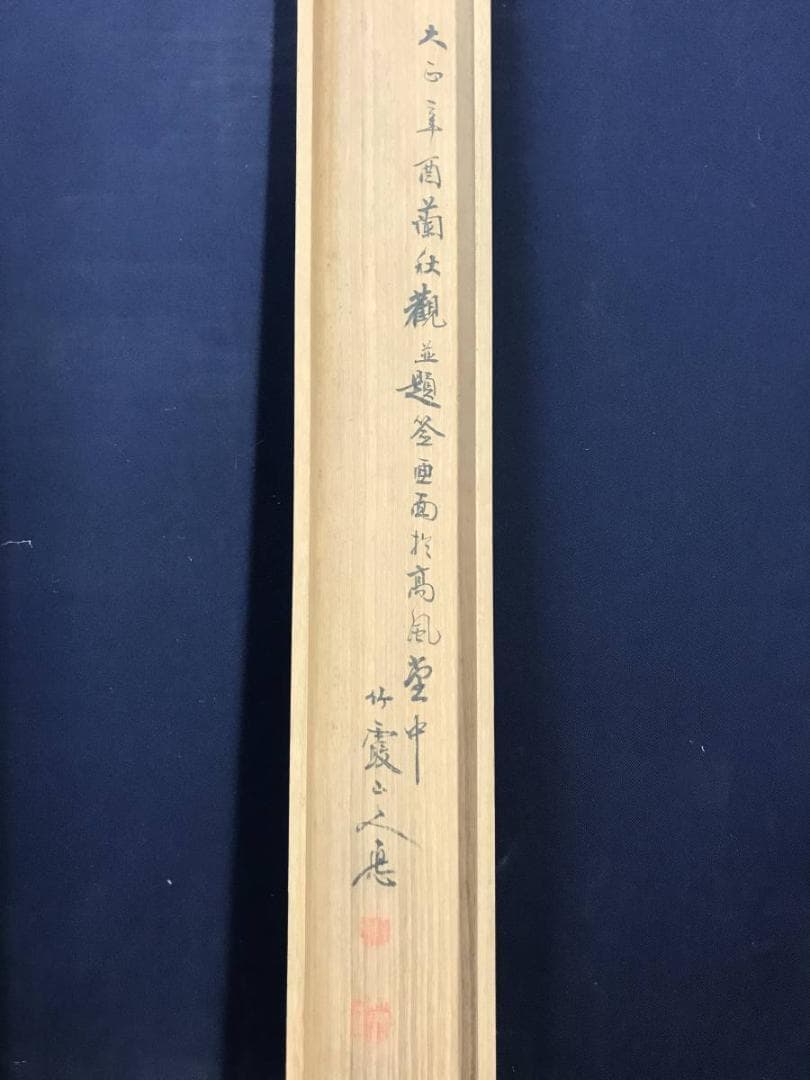 大正辛酉蘭秋觀並題簽画面於高風堂中
竹霞山人